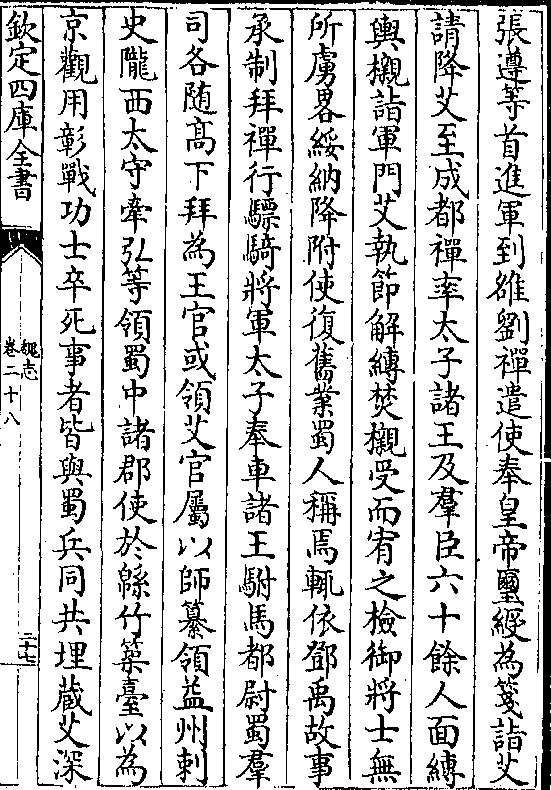 張遵等首進軍到雒劉禪遣使奉皇帝璽綬為箋詣艾
請降艾至成都禪率太子諸王及羣臣六十餘人面縛
輿櫬詣軍門艾執節解縛焚櫬受而宥之檢御將士無
所虜畧綏納降附使復舊業蜀人稱焉輒依鄧禹故事
承制拜禪行驃騎將軍太子奉車諸王駙馬都尉蜀羣
司各随髙下拜為王官或領艾官屬以師纂領益州刺
史隴西太守牽弘等領蜀中諸郡使於緜竹築臺以為
京觀用彰戰功士卒死事者皆與蜀兵同共埋藏艾深
欽定四庫全書
魏志
卷二十八
二十七